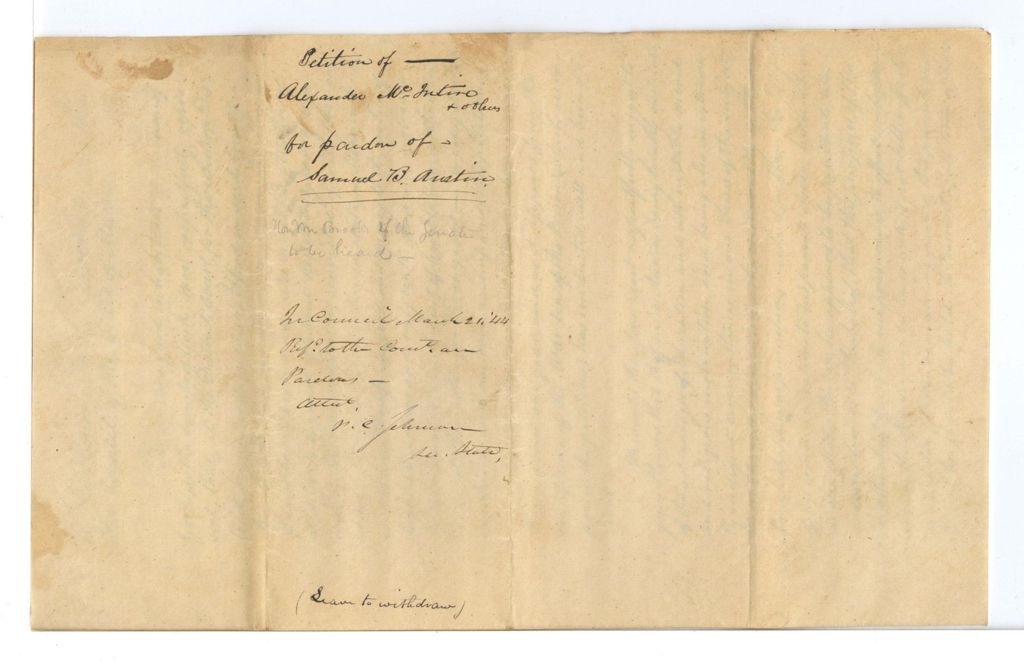 Petition of —
Alexander Mc. Intire
& others
for pardon of -
Samuel B. Austin.
Hon Mr Brooks of the Senate
to be heard —
In Council March 21. '44
Refd. to the Comt. on
Pardons —
Attest,
P. C. Johnson
Sec. State,
(Leave to withdraw)